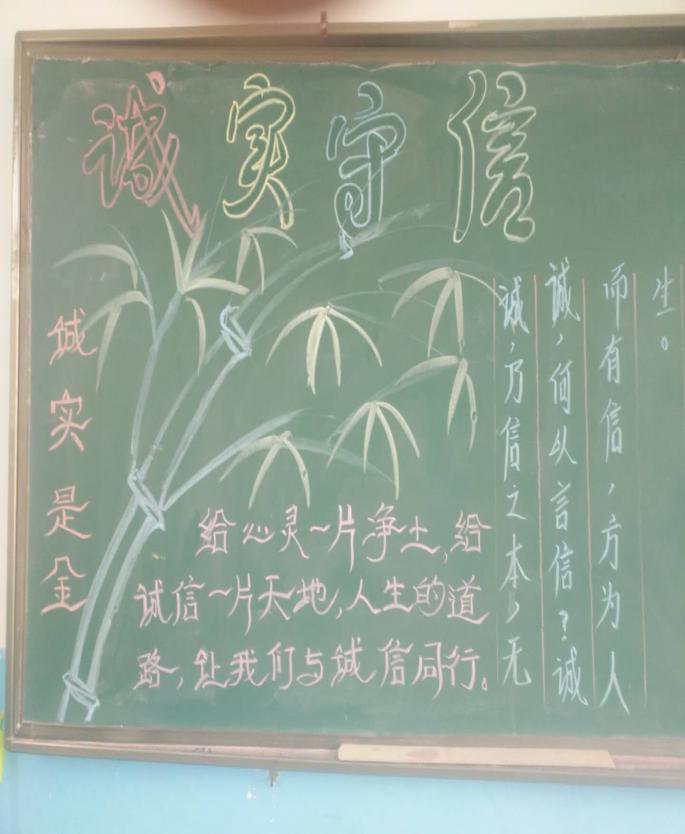 诚实守信
诚实是金
给心灵一片净土,给
诚信一片天地,人生的道
路,让我们与诚信同行。
诚,乃信之本,无
诚,何以言信?诚
而有信,方为人
生。